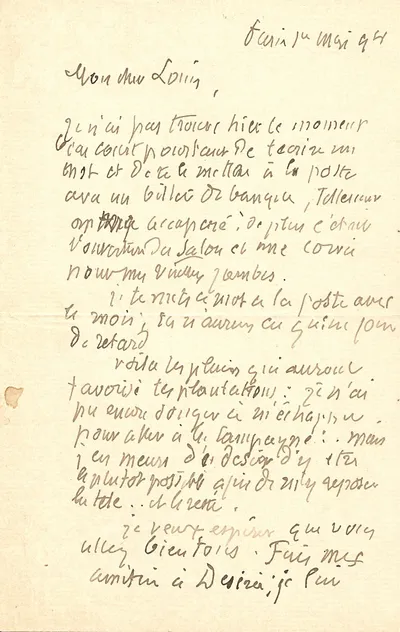 Paris 1er Mai 98
Mon cher Louis,
je n'ai pas trouvé hier le moment
si court pourtant de t'écrire un
mot et de te le mettre à la poste
avec un billet de banque, tellement
on accaparé ; de plus c'était
l'ouverture du Salon et une corvée
pour mes vieilles jambes.
je te mets ce mot à la poste avec
le mois ; tu n'auras eu qu'un jour
de retard
voilà les pluies qui auront
favorisé tes plantations : je n'ai
pu encore songer à m'échapper
pour aller à la Campagne ! .. mais
j'en meurs d'un désir d'y être
le plutot possible afin de m'y reposer
la tête .. et le reste.
je veux espérer que vous
allez bien tous. Fais mes
amitiés à Désirée ; je lui